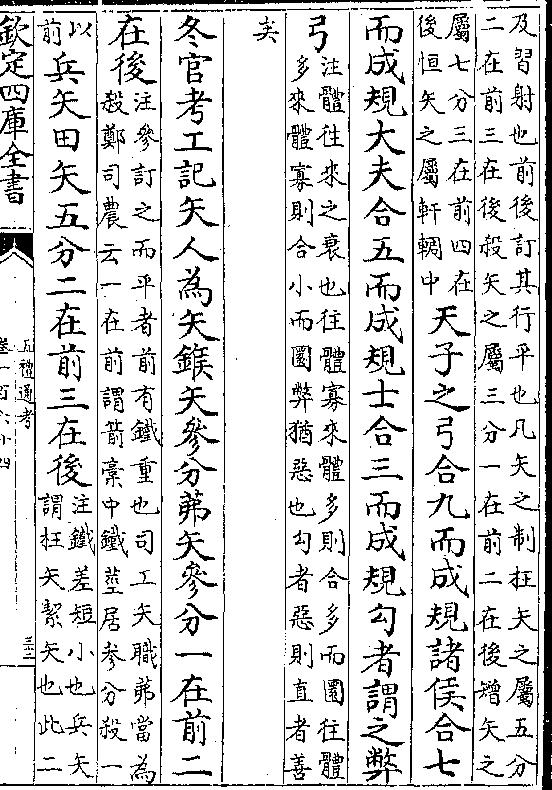 及習射也前後訂其行平也凡矢之制枉矢之屬五分
二在前三在後殺矢之屬三分一在前二在後矰矢之
屬七分三在前四在
後恒矢之屬軒輖中
天子之弓合九而成規諸侯合七
而成規大夫合五而成規士合三而成規勾者謂之弊
弓
注體往來之衰也往體寡來體多則合多而圜往體
多來體寡則合小而圜弊猶惡也勾者惡則直者善
矣
冬官考工記矢人為矢鍭矢參分茀矢參分一在前二
在後
注參訂之而平者前有鐵重也司弓矢職茀當為
殺鄭司農云一在前謂箭稾中鐵莖居參分殺一
以
前
兵矢田矢五分二在前三在後
注鐵差短小也兵矢
謂枉矢絜矢也此二
欽定四庫全書
五禮通考
卷一百六十四